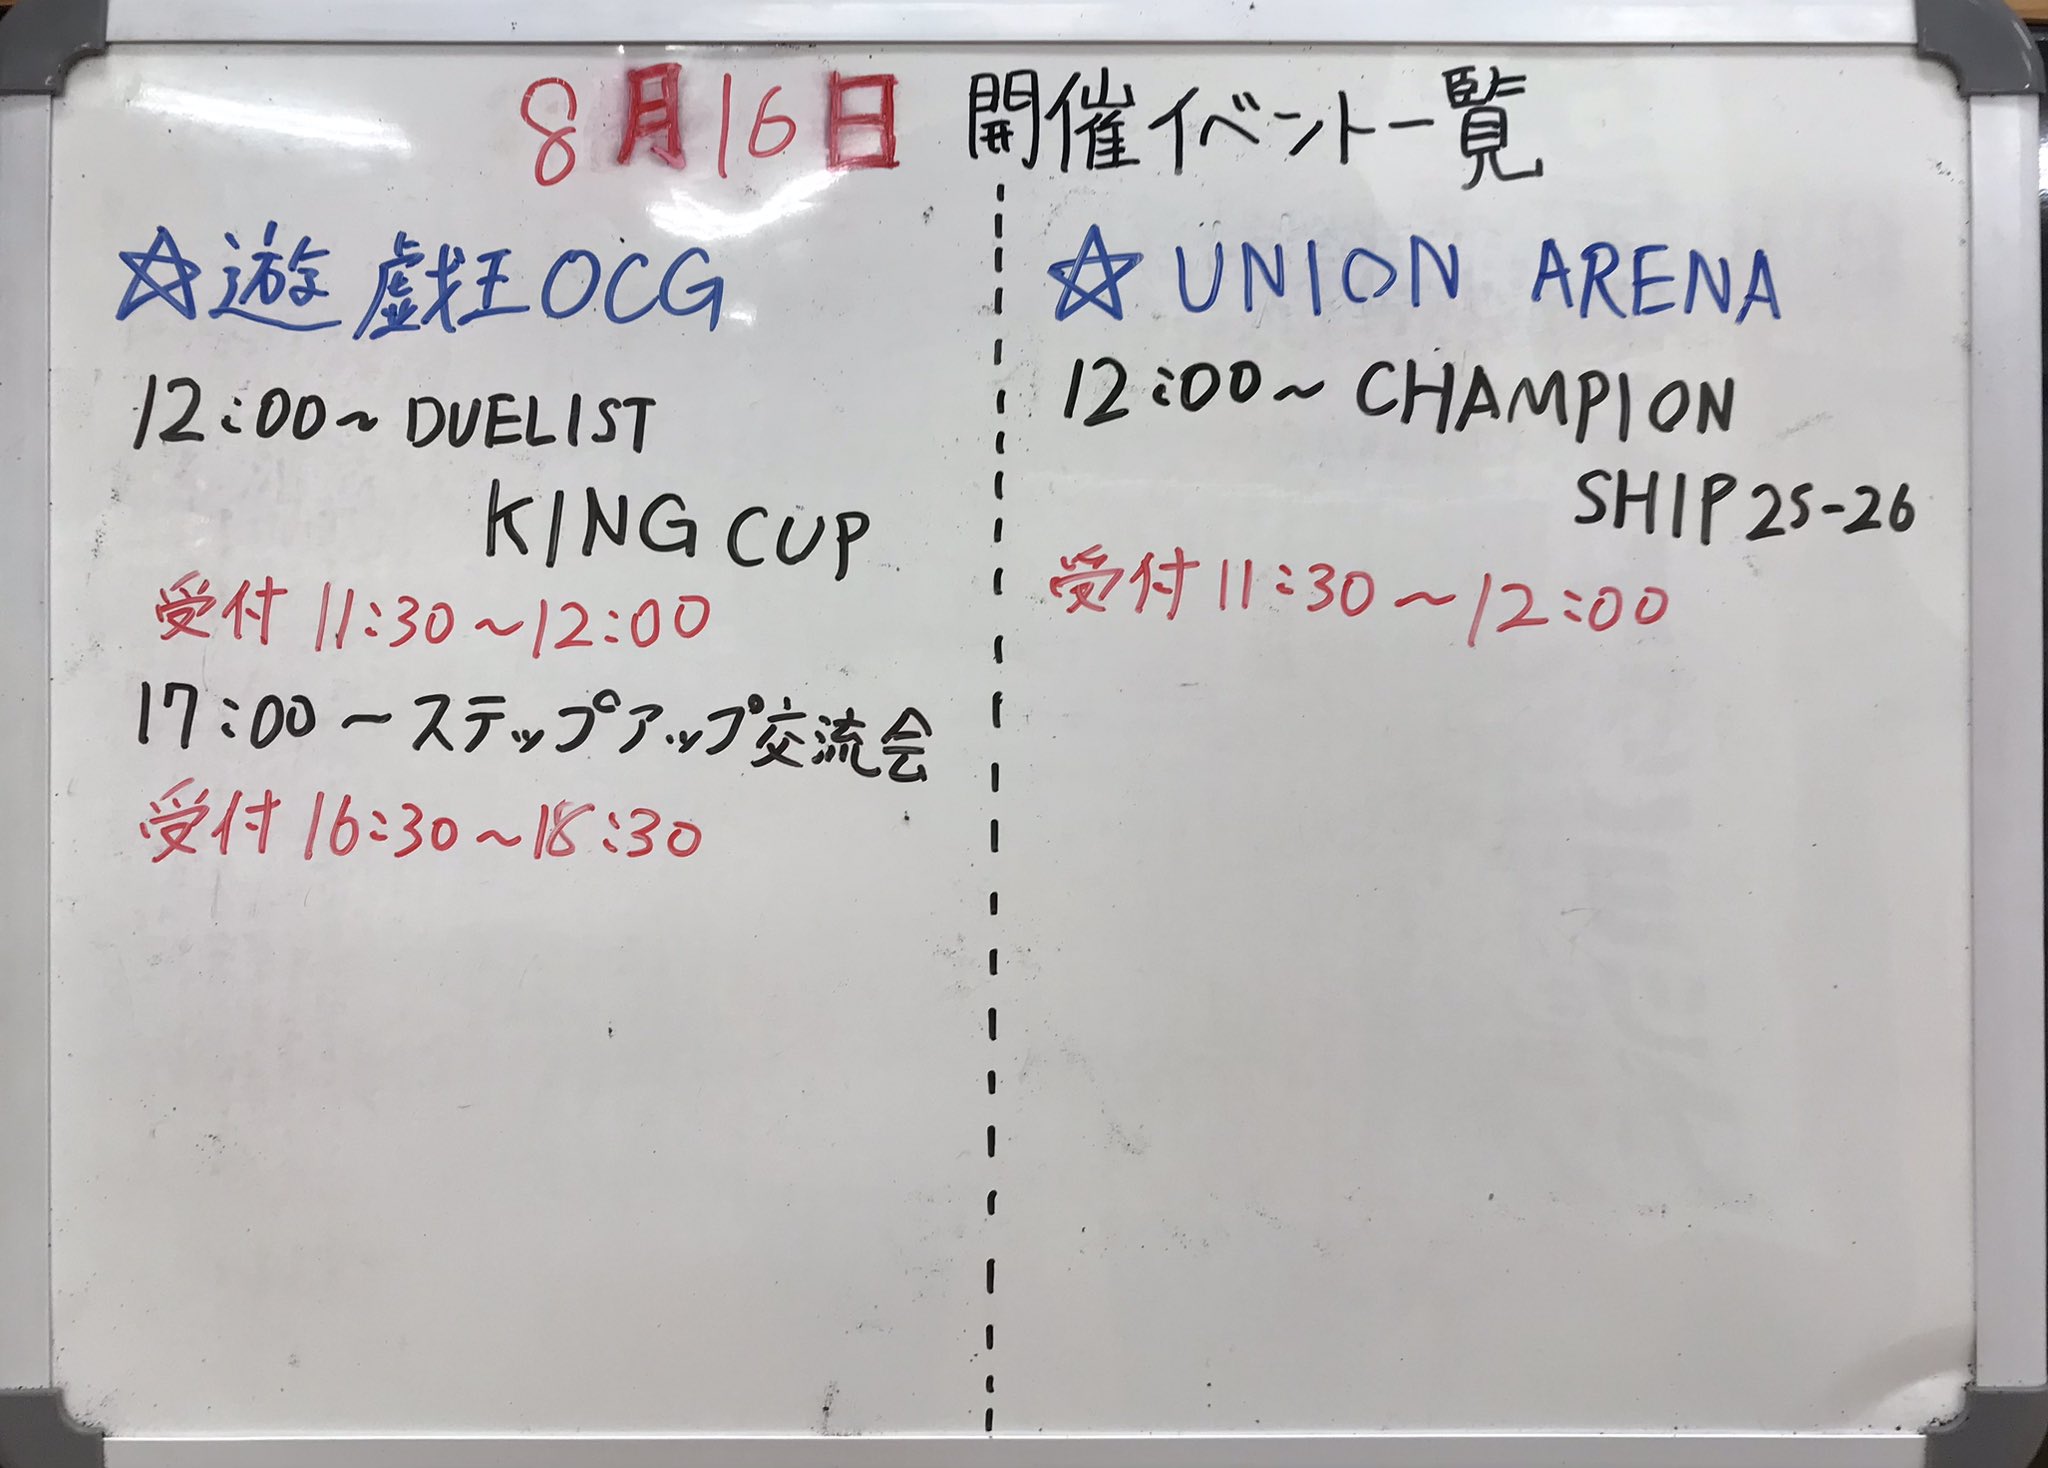 8月16日 開催イベント一覧
☆遊戯王OCG
12:00~DUELIST
KING CUP
受付 11:30~12:00
17:00~ステップアップ交流会
受付 16:30~18:30
☆UNION ARENA
12:00~CHAMPION
SHIP 25-26
受付 11:30~12:00